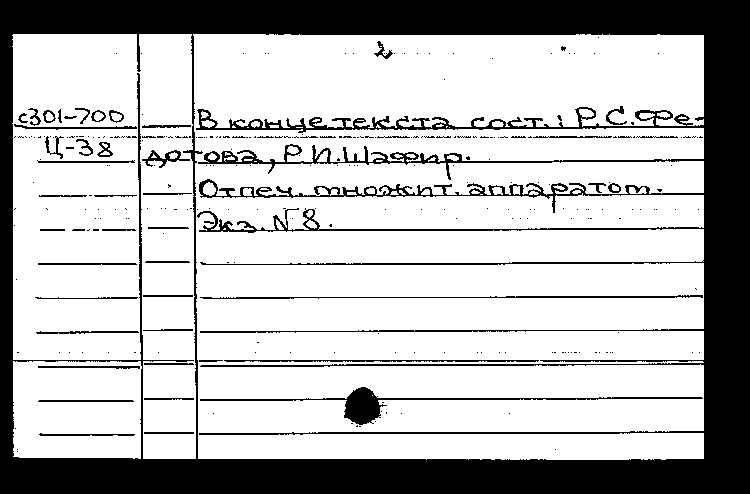 2
с301-700
В конце текста сост.: Р.С.Фе-
Ц-38
дотова, Р.И.Шафир.
Отпеч. множит. аппаратом.
Экз. №8.